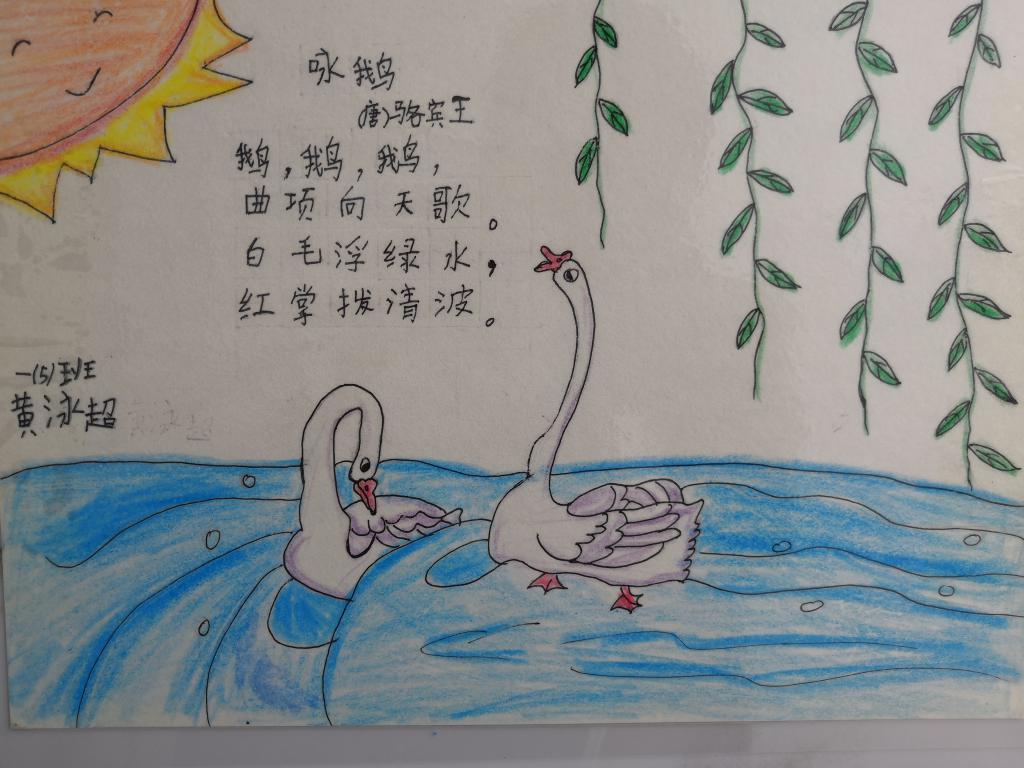 咏鹅
(唐)骆宾王
鹅，鹅，鹅，
曲项向天歌。
白毛浮绿水，
红掌拨清波。
一(5)班
黄泳超